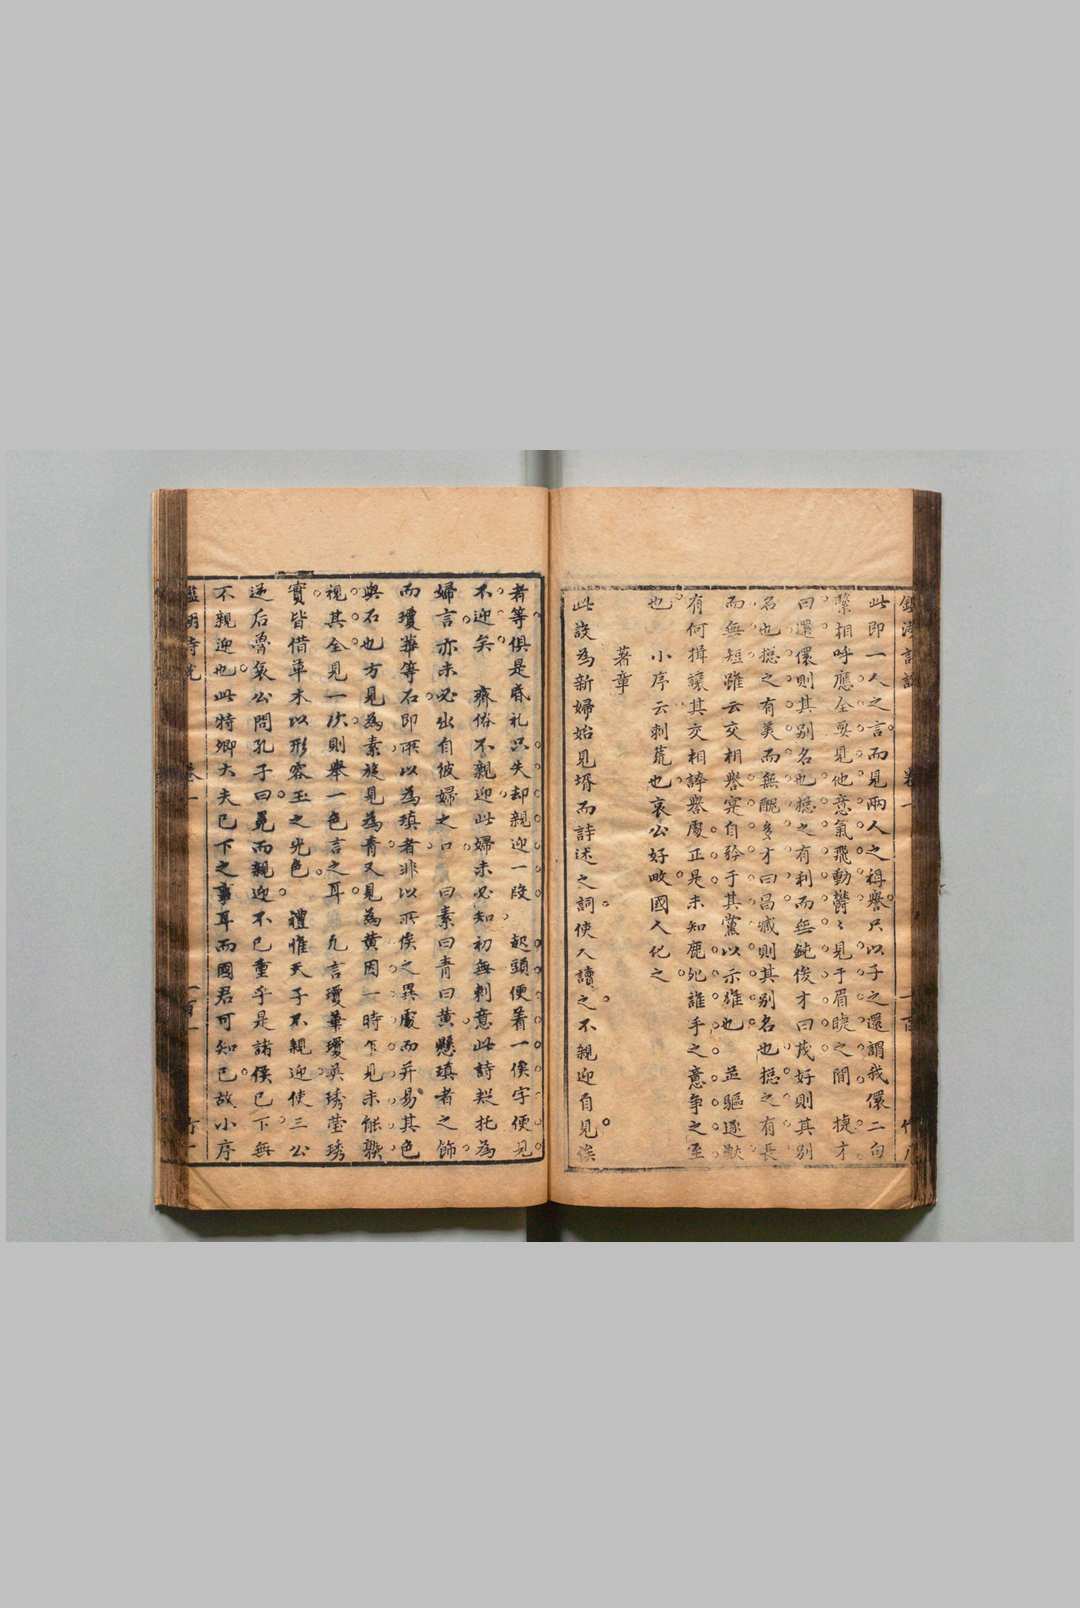 此即一人之言而見兩人之稱譽只以子之還謂我儇二句
緊相呼應全要見他意氣飛動鬱〻見于眉睫之間 捷才
曰還儇則其别名也揔之有利而無鈍俊才曰茂好則其别
名也揔之有美而無醜多才曰昌臧則其别名也揔之有長
而無短雖云交相譽寔自矜于其黨以示雄也 並驅逐獸
有何揖讓其交相譁譽處正是未知鹿死誰手之意争之至
也 小序云刺荒也哀公好畋國人化之
著章
此設為新婦始見壻而詩述之詞使人讀之不親迎自見俟
者等俱是昏礼只失却親迎一段 起頭便着一俟字便見
不迎矣 齊俗不親迎此婦未必知初無刺意此詩擬托為
婦言亦未必出自彼婦之口 曰素曰青曰黄懸瑱者之飾
而瓊華等石即所以為瑱者非以所俟之異處而并易其色
與石也方見為素旋見為青又見為黄因一時乍見未能諦
視其全見一次則舉一色言之耳 凡言瓊華瓊英琇瑩琇
實皆借草木以形容玉之光色 禮惟天子不親迎使三公
逆后魯哀公問孔子曰冕而親迎不已重乎是諸侯已下無
不親迎也此特卿大夫已下之事耳而國君可知已故小序